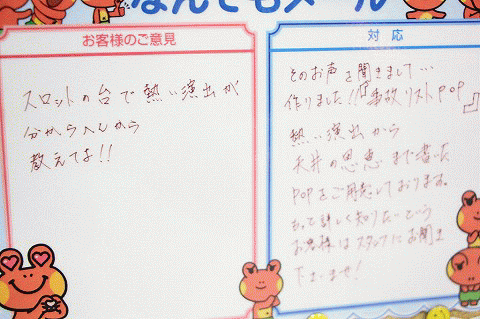 なんでもメール
お客様のご意見
スロットの台で熱い演出が
分からへんから
教えてよ!!
対応
そのお声を聞きまして…
作りました!!『事故リストPOP』
熱い演出から
天井の恩恵まで書いた
POPをご用意しております。
もって詳しく知りたいという
お客様はスタッフにお聞き
下さいませ!